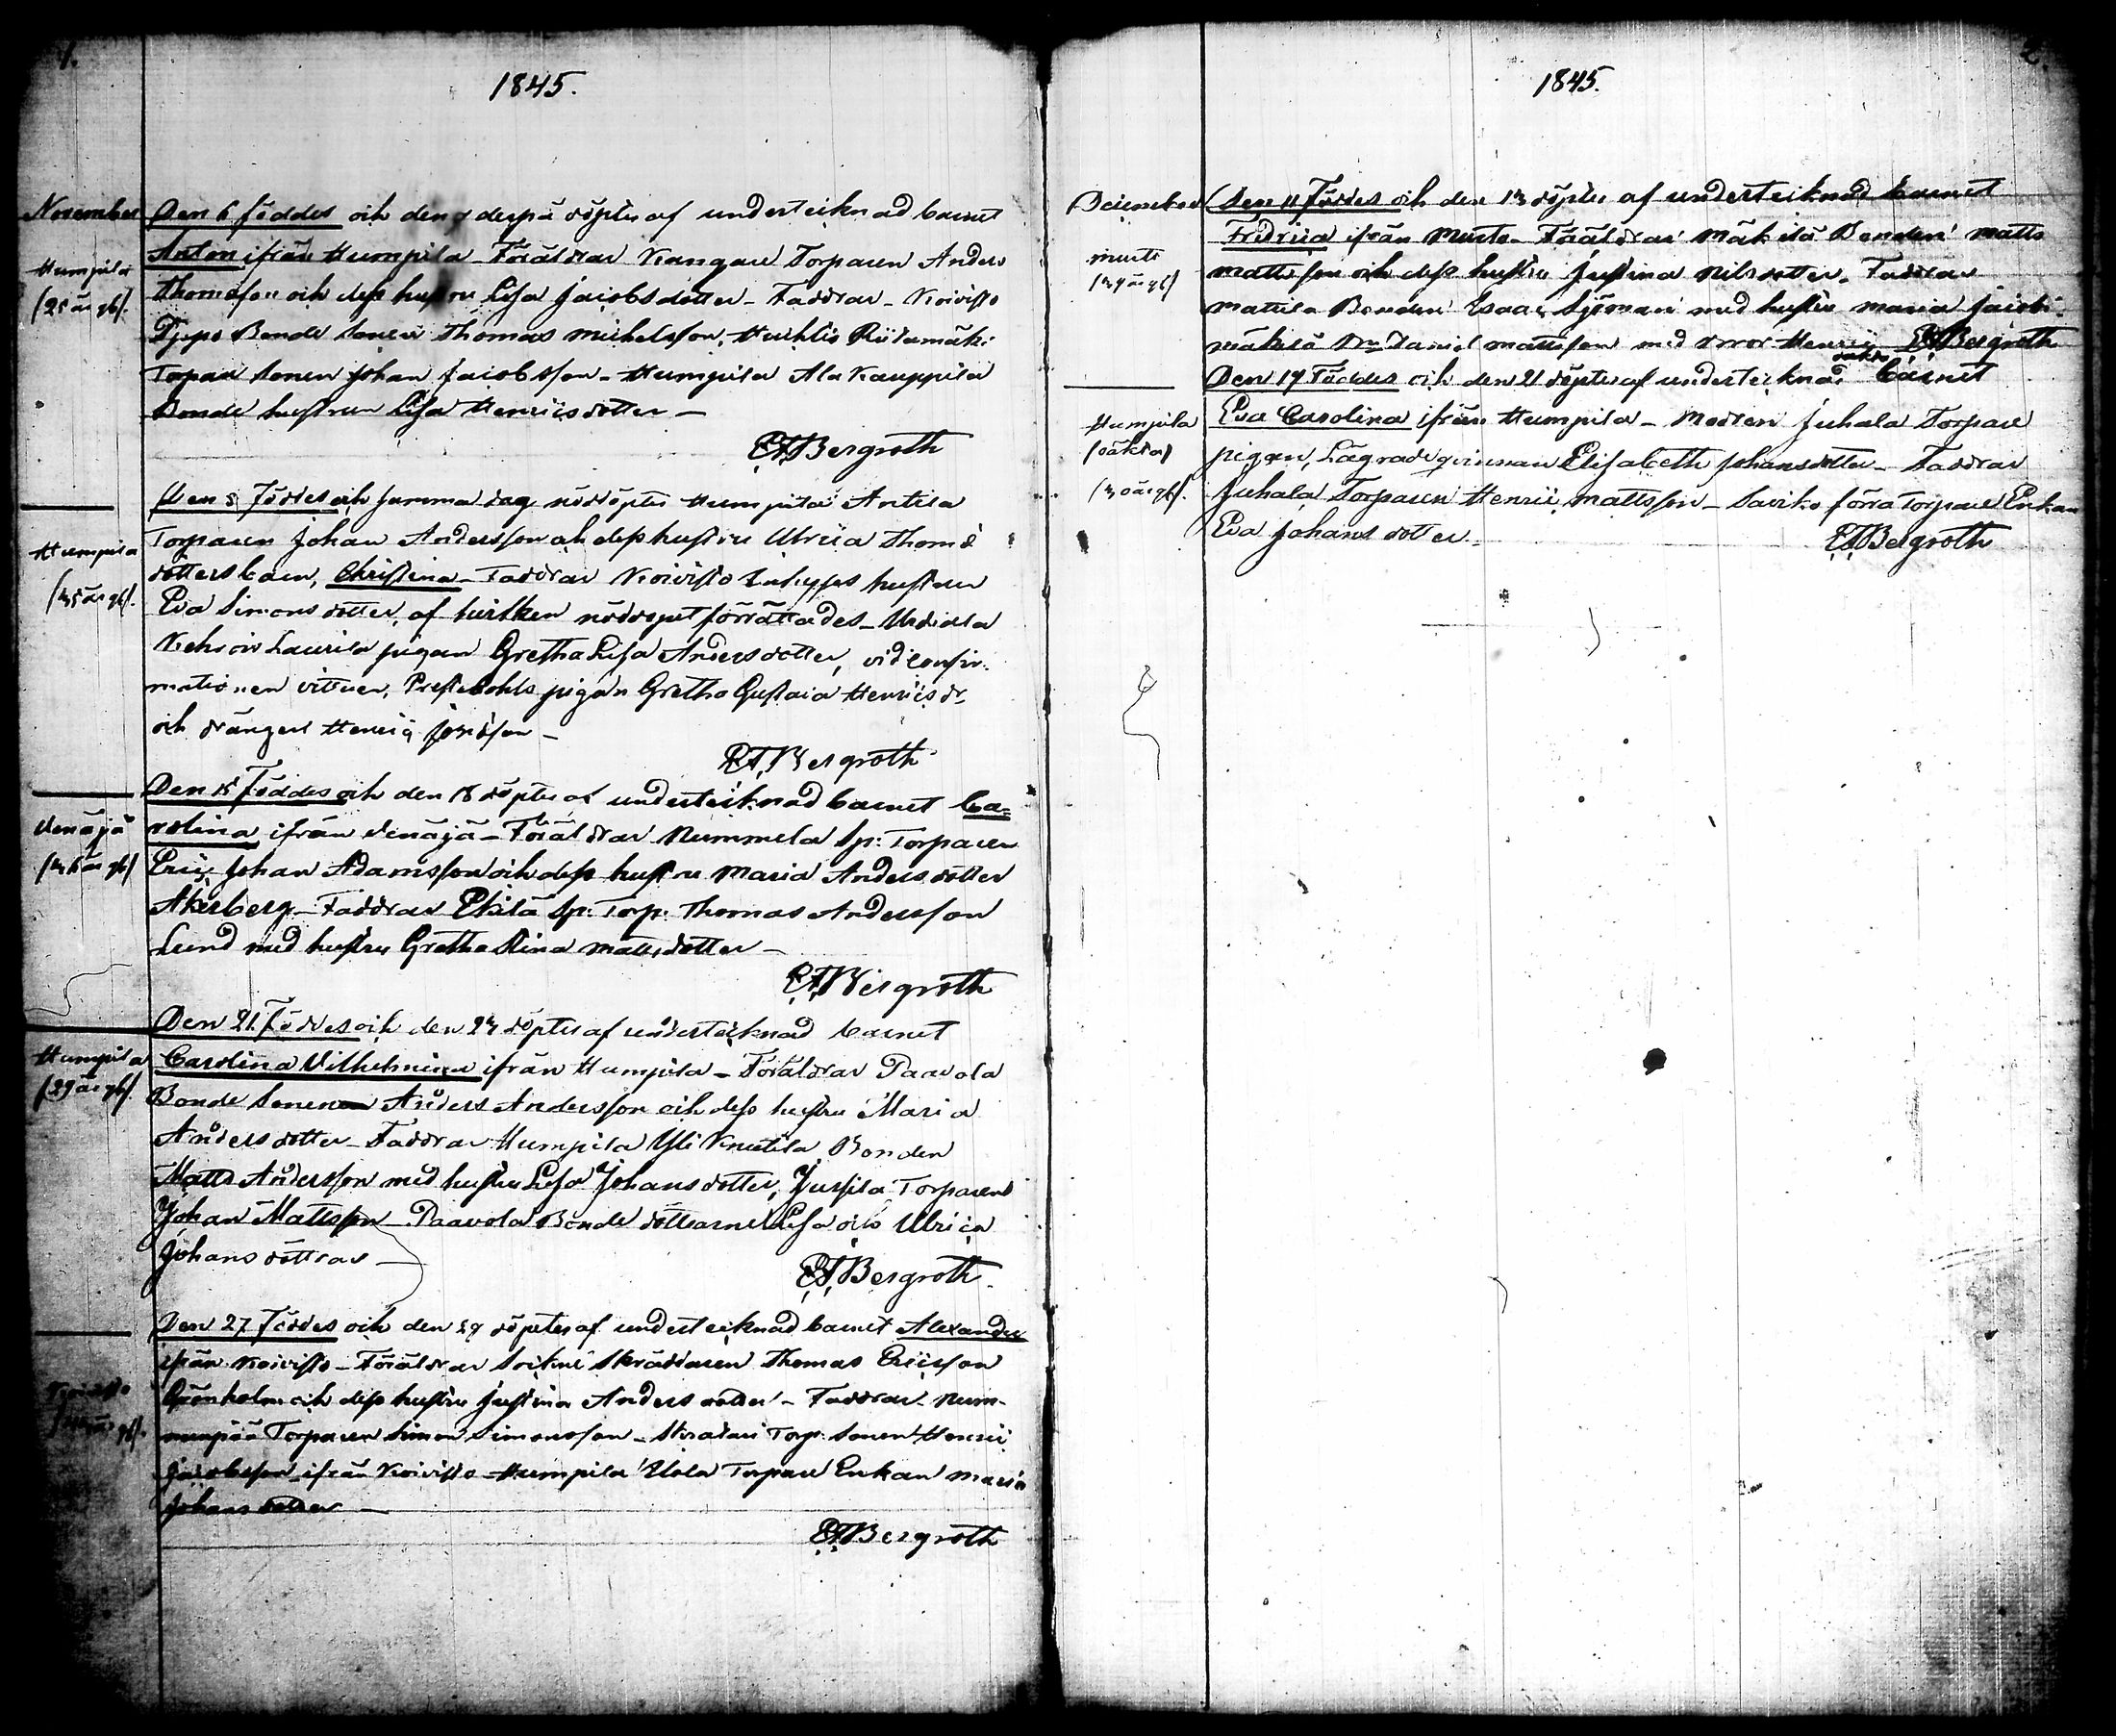 1.
1845.
November
Den 6 föddes och den 7 derpå döptes af undertecknad barnet
Humpila
Anton ifrån Humpila – Föräldrar Kangare Torparen Anders
(25 år gl).
Thomasson och dess hustru Lisa Jacobsdotter – Faddrar – Koivisto
Bonde sonen Thomas Michelsson, Huhtio Riitamäki
Torpare sonen Johan Jacobsson – Humpila Ala Kauppila
Bonde hustrun Lisa Henricsdotter –
Bergroth
Den 8 Föddes och samma dag nöddöptes Humpila Antila
Humpila
Torparen Johan Andersson och dess hustru Ulrica Thomæ
dotters barn, Christina – Faddrar Koivisto hustrun
Eva Simonsdotter, af hvilken nöddopet förrättades – Urdiala
Laurila pigan Gretha Lisa Andersdotter, vid confir-
mationen vittnen, Prestebohls pigan Gretha Gustava Henricsdr
och drängen Henric
Bergroth
Den 15 Föddes och den 18 döptes af undertecknad barnet Ca-
Venäjä
rolina ifrån Venäjä – Föräldrar Nummela Sp: Torparen
Eric Johan Adamsson och dess hustru Maria Andersdotter
Åkerberg – Faddrar Ekilä Sp: Torp: Thomas Andersson
Lund med hustru Gretha Stina Mattsdotter –
Bergroth
Den 21 Föddes och den 23 döptes af undertecknad barnet
Humpila
Carolina Vilhelmina ifrån Humpila – Föräldrar Paavola
(29 år gl).
Bonde sonen Anders Andersson och dess hustru Maria
Andersdotter – Faddrar Humpila Yli Knutila Bonden
Matts Andersson med hustru Lisa Johansdotter, Jussila Torparen
Johan Mattsson – Paavola Bonde döttrarne Lisa och Ulrica
Johansdöttrar –
Bergroth
Den 27 Föddes och den 29 döptes af undertecknad barnet Alexander
ifrån Koivisto – Föräldrar Sockne Skräddaren Thomas Ericsson
Grönholm och dess hustru Justina Andersdotter – Faddrar – Num-
Koivisto
menpää Torparen Simon Simonsson – Torp: sonen Henric
Jacobsson ifrån Koivisto – Humpila Uola Torpare Enkan Maria
Johansdotter –
Bergroth
2.
1845.
December
Den 11 Föddes och den 13 döptes af undertecknad barnet
Fredrica ifrån Murto – Föräldrar Mäkilä Bonden Matts
Murto
Mattsson och dess hustru Justina Nilsdotter – Faddrar
Mattila Bonden Isaac Sjöman med hustru Maria Jacobs.
Mäkilä Daniel Mattsson med Henric Bergroth
oäkta
Den 19 Föddes och den 21 döptes af undertecknad barnet
Humpila
Eva Carolina ifrån Humpila – Modren Juhala Torpare
(oäkta)
pigan, Lägrade qvinnan Elisabeth Johansdotter – Faddrar
(30 år gl).
Juhala Torparen Henric Mattsson – Saviko förra Torpare Enkan
Eva Johansdotter –
Bergroth